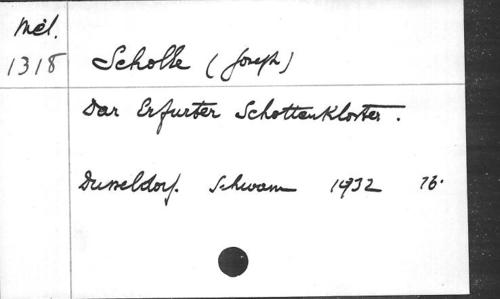 Mél.
1318
Scholle (Joseph)
Das Erfurter Schottenkloster.
Dusseldorf. Schwann 1932